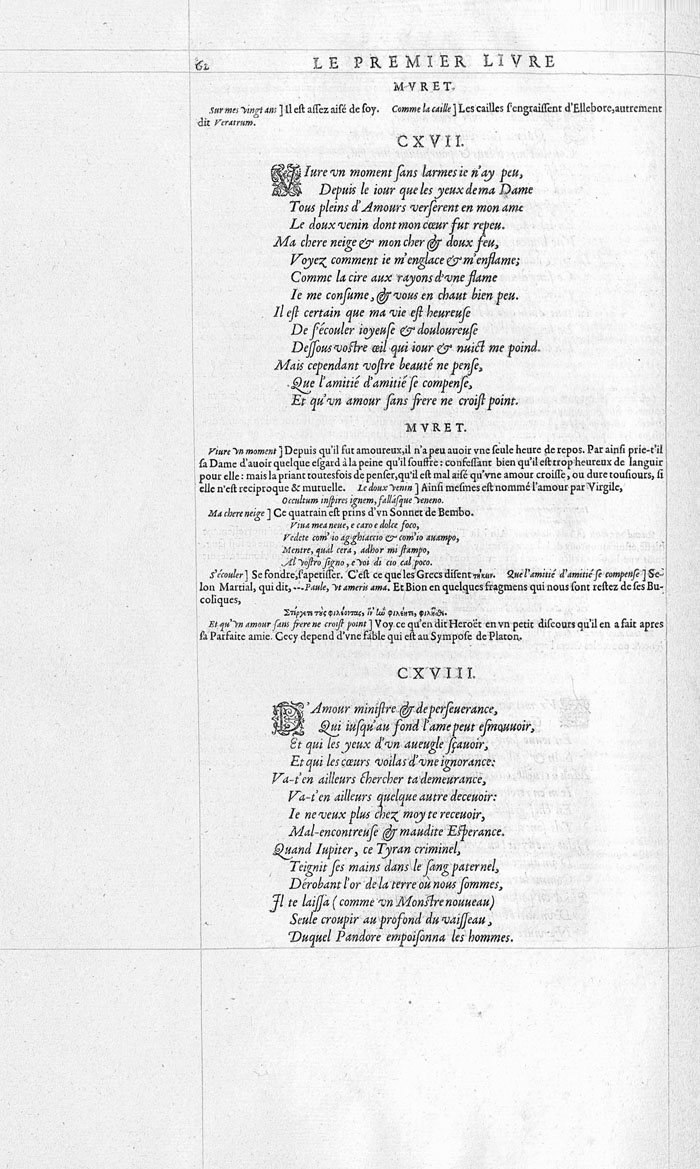 62 LE PREMIER LIVRE
MVRET.
Sur mes vingt ans] Il est assez aisé de soy. Comme la caille] Les cailles s'engraissent d'Ellebore, autrement
dit Veratrum.
CXVII.
VIure vn moment sans larmes ie n'ay peu,
Depuis le iour que les yeux de ma Dame
Tous pleins d'Amours verserent en mon ame
Le doux venin dont mon cœur fut repeu.
Ma chere neige & mon cher & doux feu,
Voyez comment ie m'englace & m'enflame;
Comme la cire aux rayons d'vne flame
Ie me consume, & vous en chaut bien peu.
Il est certain que ma vie est heureuse
De s'écouler ioyeuse & douloureuse
Dessous vostre œil qui iour & nuict me poind.
Mais cependant vostre beauté ne pense,
Que l'amitié d'amitié se compense,
Et qu'vn amour sans frere ne croist point.
MVRET.
Viure vn moment] Depuis qu'il fut amoureux, il n'a peu auoir vne seule heure de repos. Par ainsi prie-t'il
sa Dame d'auoir quelque esgard à la peine qu'il souffre: confessant bien qu'il est trop heureux de languir
pour elle: mais la priant toutesfois de penser, qu'il est mal aisé qu'vne amour croisse, ou dure tousiours, si
elle n'est reciproque & mutuelle. Le doux venin] Ainsi mesmes est nommé l'amour par Virgile,
Occultum inspires ignem, fallásque veneno.
Ma chere neige] Ce quatrain est prins d'vn Sonnet de Bembo.
Viua mea neue, e caro e dolce foco,
Vedete com' io agghiaccio & com' io auampo,
Mentre, qual cera, adhor mi stampo,
Al vostro signo, e voi di cio cal poco.
S'écouler] Se fondre, s'apetisser. C'est ce que les Grecs disent τήκειν. Que l'amitié d'amitié se compense] Se-
lon Martial, qui dit, --- Paule, vt ameris ama. Et Bion en quelques fragmens qui nous sont restez de ses Bu-
coliques,
Στέργετε τοὺς φιλέοντας, ἵν'
Et qu'vn amour sans frere ne croist point] Voy ce qu'en dit Heroët en vn petit discours qu'il en a fait apres
sa Parfaite amie. Cecy depend d'vne fable qui est au Sympose de Platon.
CXVIII.
D'Amour ministre & de perseuerance,
Qui iusqu'au fond l'ame peut esmouuoir,
Et qui les yeux d'vn aueugle sçauoir,
Et qui les cœurs voilas d'vne ignorance:
Va-t'en ailleurs chercher ta demeurance,
Va-t'en ailleurs quelque autre deceuoir:
Ie ne veux plus chez moy te receuoir,
Mal-encontreuse & maudite Esperance.
Quand Iupiter, ce Tyran criminel,
Teignit ses mains dans le sang paternel,
Dérobant l'or de la terre où nous sommes,
Il te laissa (comme vn Monstre nouueau)
Seule croupir au profond du vaisseau,
Duquel Pandore empoisonna les hommes.